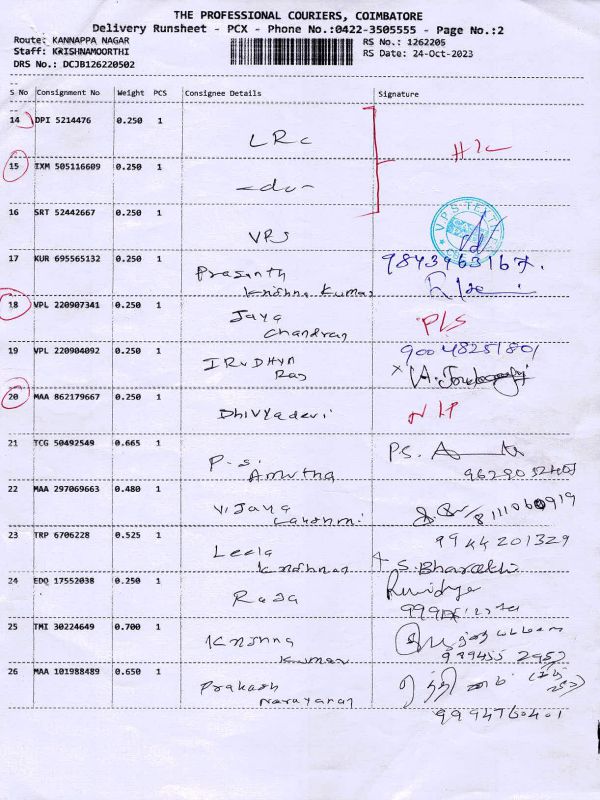 THE PROFESSIONAL COURIERS, COIMBATORE
Delivery Runsheet - PCX - Phone No.:0422-3505555 - Page No.:2
Route: KANNAPPA NAGAR RS No.: 1262205
Staff: KRISHNAMOORTHI RS Date: 24-Oct-2023
DRS No.: DCJB126220502
S No Consignment No Weight PCS Consignee Details Signature
14 DPI 5214476 0.250 1
LRC
15 IXM 505116609 0.250 1
-do-
16 SRT 52442667 0.250 1
VPS
17 KUR 695565132 0.250 1 9843963167
Prasanth
Krishna Kumar
18 VPL 220907341 0.250 1
Jaya P/S
Chandran
19 VPL 220904092 0.250 1 90048251801
IRUDHYA
Raj
20 MAA 862179667 0.250 1
Dhivyadevi
21 TCG 50492549 0.665 1 P.S.
P.S.
Amutha
22 MAA 297069663 0.480 1
Vijaya
Lakshmi
23 TRP 6706228 0.525 1 9944201329
Leela
Krishnan S. Bharathi
24 EDQ 17552038 0.250 1
Raja
25 TMI 30224649 0.700 1
Krishna
Kumar
26 MAA 101988489 0.650 1
Prakash
Narayanan
9994760401